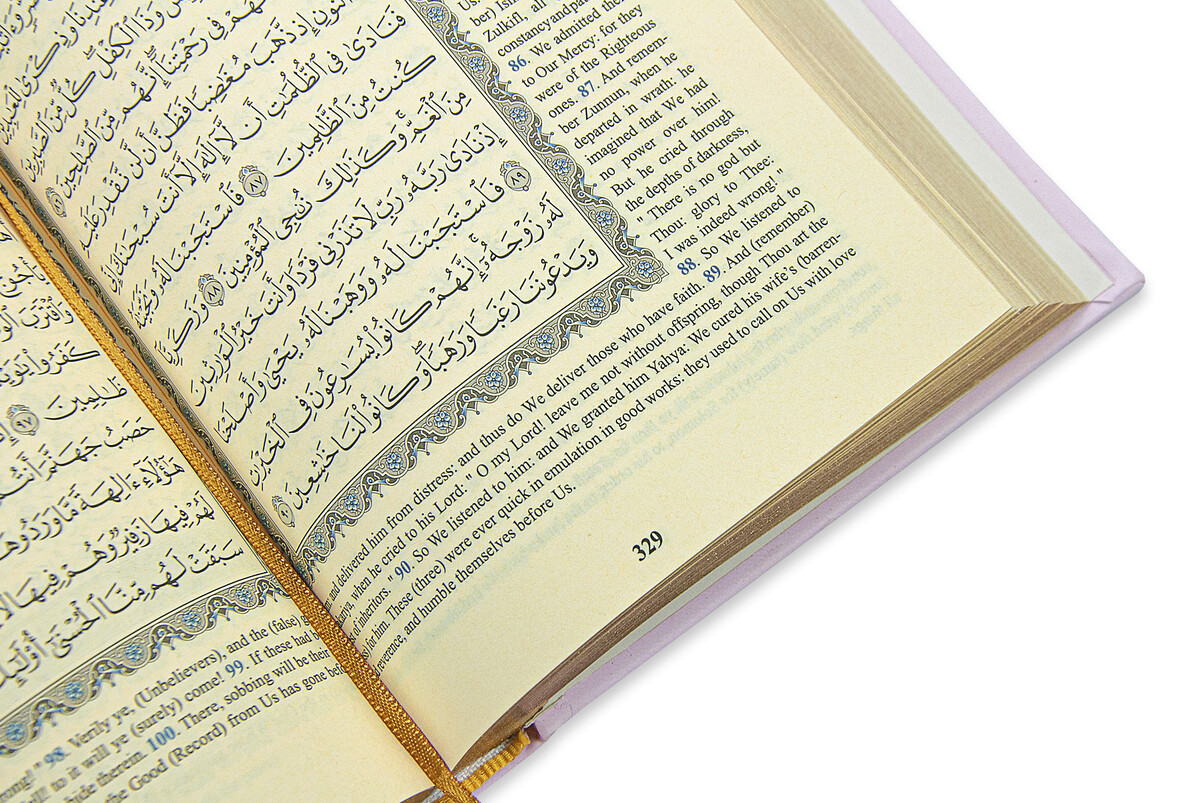 وَذَا ٱلْكِفْلِ كُلٌّ مِّنَ ٱلصَّٰبِرِينَ
فِى رَحْمَتِنَآ إِنَّهُم مِّنَ ٱلصَّٰلِحِينَ ٨٦
إِذ ذَّهَبَ مُغَٰضِبًا فَظَنَّ أَن لَّن نَّقْدِرَ عَلَيْهِ
فَنَادَىٰ فِى ٱلظُّلُمَٰتِ أَن لَّآ إِلَٰهَ إِلَّآ أَنتَ سُبْحَٰنَكَ إِنِّى
كُنتُ مِنَ ٱلظَّٰلِمِينَ ٨٧ فَٱسْتَجَبْنَا لَهُۥ وَنَجَّيْنَٰهُ
مِنَ ٱلْغَمِّ وَكَذَٰلِكَ نُۨجِى ٱلْمُؤْمِنِينَ ٨٨ وَزَكَرِيَّآ
إِذْ نَادَىٰ رَبَّهُۥ رَبِّ لَا تَذَرْنِى فَرْدًا وَأَنتَ خَيْرُ ٱلْوَٰرِثِينَ
٨٩ فَٱسْتَجَبْنَا لَهُۥ وَوَهَبْنَا لَهُۥ يَحْيَىٰ وَأَصْلَحْنَا
لَهُۥ زَوْجَهُۥٓ إِنَّهُمْ كَانُوا۟ يُسَٰرِعُونَ فِى ٱلْخَيْرَٰتِ
وَيَدْعُونَنَا رَغَبًا وَرَهَبًا وَكَانُوا۟ لَنَا خَٰشِعِينَ ٩٠
Zulkifl, all
constancy and
86. We admitted them
to Our Mercy: for they
were of the Righteous
ones. 87. And remem-
ber Zunnun, when he
departed in wrath: he
imagined that We had
no power over him!
But he cried through
the depths of darkness,
" There is no god but
Thou: glory to Thee:
I was indeed wrong! "
88. So We listened to
and delivered him from distress: and thus do We deliver those who have faith. 89. And (remember)
when he cried to his Lord: " O my Lord! leave me not without offspring, though Thou art the
of inheritors. " 90. So We listened to him: and We granted him Yahya: We cured his wife's (barren-
for him. These (three) were ever quick in emulation in good works; they used to call on Us with love
reverence, and humble themselves before Us.
329
كَفَرُوا۟
ظَٰلِمِينَ ٩٧
حَصَبُ جَهَنَّمَ أَنتُمْ
هَٰٓؤُلَآءِ ءَالِهَةً مَّا وَرَدُوهَا
لَهُمْ فِيهَا زَفِيرٌ وَهُمْ فِيهَا لَا
سَبَقَتْ لَهُم مِّنَّا ٱلْحُسْنَىٰٓ أُو۟لَٰٓئِكَ
" 98. Verily ye, (Unbelievers), and the (false)
to it will ye (surely) come! 99. If these had
therein. 100. There, sobbing will be their
the Good (Record) from Us has gone